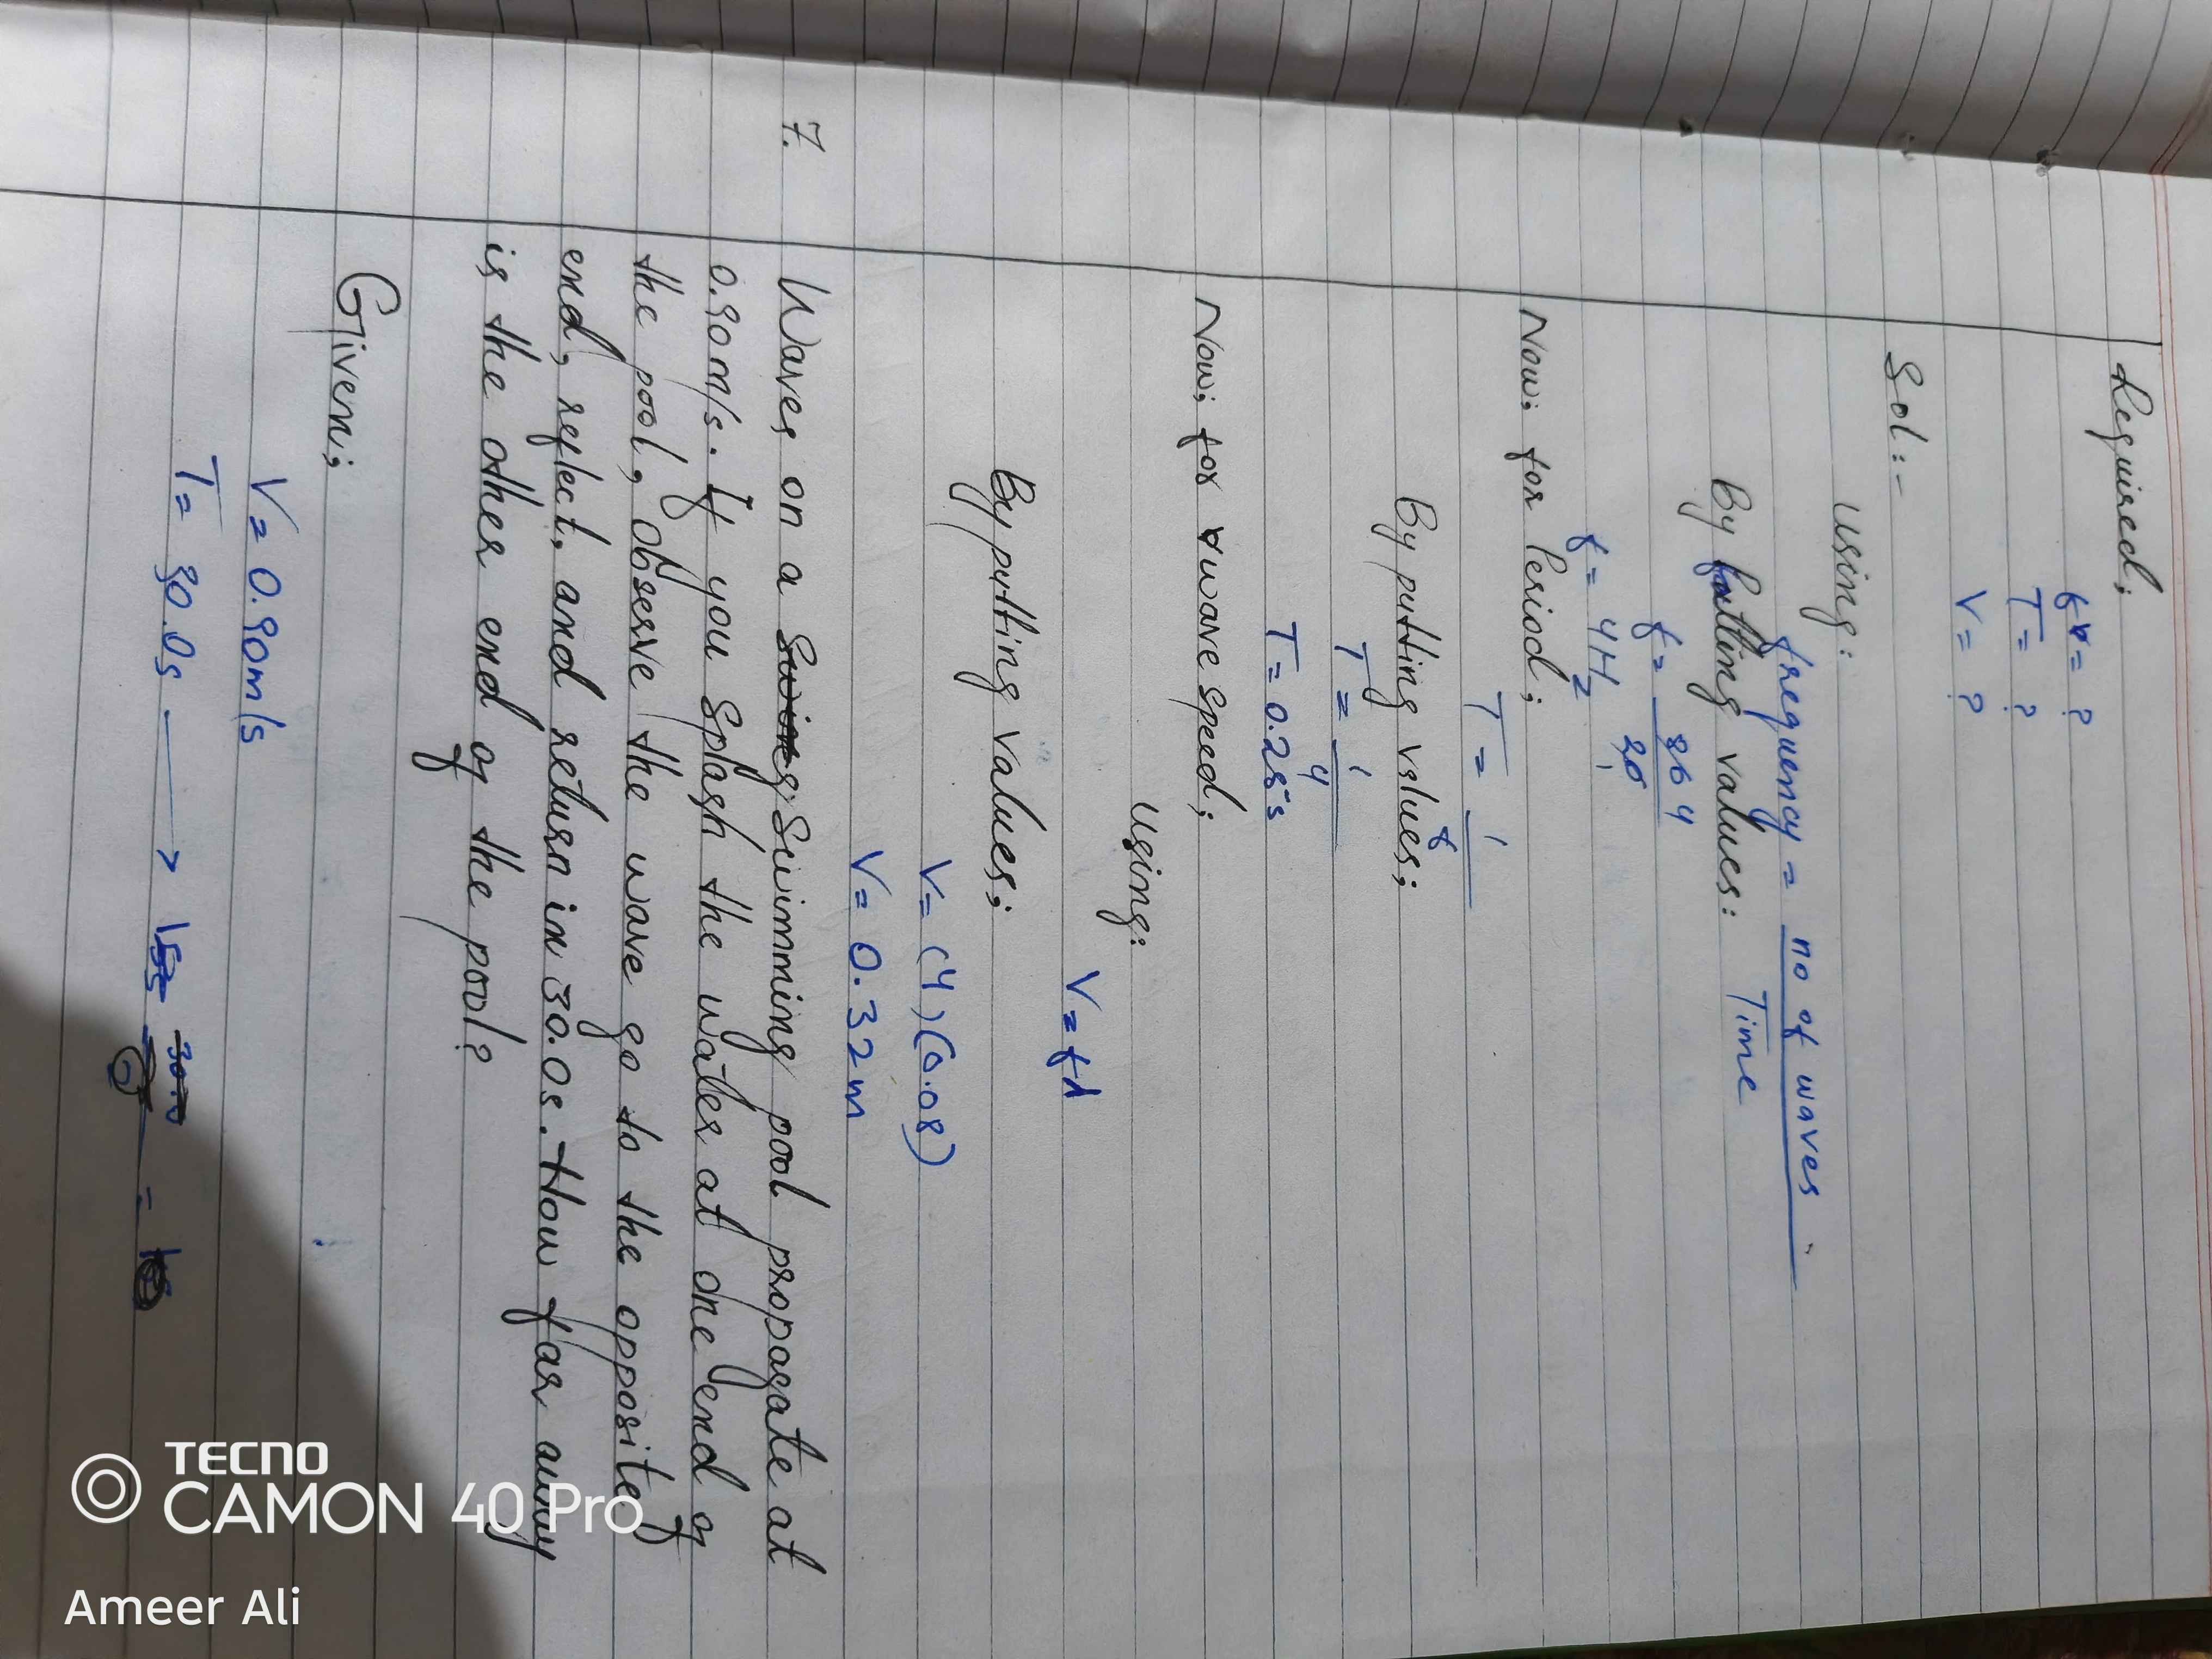 Required;
f = ?
T = ?
V = ?
Sol:-
Using:
frequency = no of waves
Time
By putting values:
f = 80 4
20
1
f = 4Hz
Now; for Period;
T = 1
f
By putting values;
T = 1
4
T = 0.25s
Now; for wave speed;
Using:
V = fλ
By putting values;
V = (4)(0.08)
V = 0.32m
7. Waves on a Swing Swimming pool propagate at
0.90m/s. If you Splash the water at one end of
the pool, observe the wave go to the opposite
end, reflect, and return in 30.0s. How far away
is the other end of the pool?
Given;
V = 0.90m/s
T = 30.0s → 15s 30.0 =
2
TECNO
CAMON 40 Pro
Ameer Ali